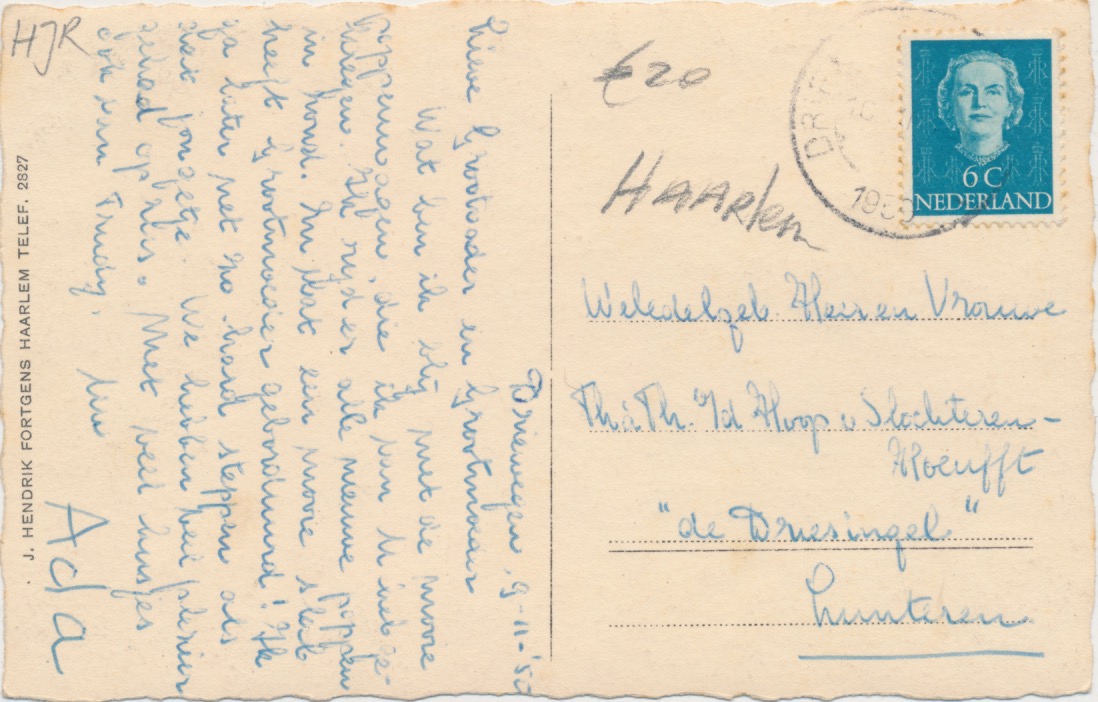 HJR
J. HENDRIK FORTGENS HAARLEM TELEF. 2827
Driewegen, 9-11-'50
Lieve Grootvader en Grootmoeder
Wat ben ik blij met de mooie
poppenwagen, die ik van U heb ge-
kregen. Ik rijd er alle nieuwe poppen
in rond. En wat een mooie slab
heeft Grootmoeder geborduurd! Ik
ga later net zo hard steppen als
dat jongetje. We hebben veel plezier
gehad op reis. Met veel kusjes
ook van Trudy, van
Ada
€20
HAARlem
DRIEW
195
6C
NEDERLAND
Weledelgeb. Heer en Vrouwe
Th. à Th. v/d Hoop v Slochteren-
Hoeufft
"de Driesingel"
Lunteren